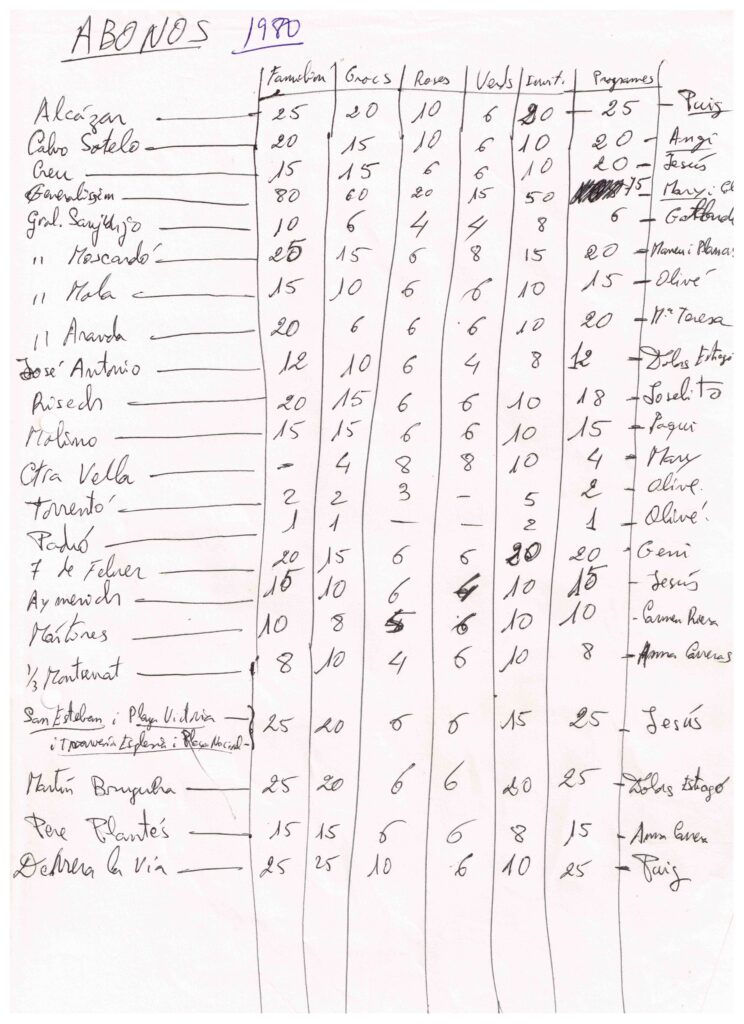 ABONOS 1980
Familiar Grocs Roses Verds Invit. Programes
Alcázar 25 20 10 6 20 25 - Puig
Calvo Sotelo 20 15 10 6 10 20 - Angi
Creu 15 15 6 6 10 20 - Jesús
Generalísim 80 60 20 15 50 75 - Mary i
Gral. Sanjurjo 10 6 4 4 8 6 -
" Moscardó 25 15 6 8 15 20 - i Planas
" Mola 15 10 6 6 10 15 - Olivé
" Aranda 20 6 6 6 10 20 - Mª Teresa
José Antonio 12 10 6 4 8 12 - Dolors Estragó
Risech 20 15 6 6 10 18 - Joselito
Molino 15 15 6 6 10 15 - Paqui
Ctra Vella - 4 8 8 10 4 - Mary
Torrentó 2 2 3 - 5 2 - Olivé.
Padró 1 1 - - 2 1 - Olivé.
7 de Febrer 20 15 6 6 20 20 - Geni
Aymerich 15 10 6 4 10 15 - Jesús
Mártires 10 8 5 6 10 10 - Carmen Riera
1/3 Montserrat 8 10 4 6 10 8 - Anna Carreras
San Esteban i Plaza Victoria
i Esglesia i Plaça Nacional - 25 20 6 6 15 25 - Jesús
Martín Brugulla 25 20 6 6 20 25 - Dolors Estragó
Pere Plantés 15 15 6 6 8 15 - Anna
Darrera la Via 25 25 10 6 10 25 - Puig